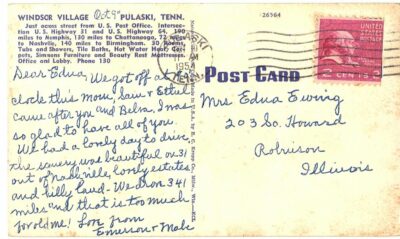 WINDSOR VILLAGE Oct 9th PULASKI, TENN.
Just across street from U. S. Post Office. Intersection
U. S. Highway 31 and U. S. Highway 64, 190
miles to Memphis, 130 miles to Chattanooga, 72 miles
to Nashville, 140 miles to Birmingham. 30 Rooms,
Tubs and Showers, Tile Baths, Hot Water Heat, Carpets,
Simmons Furniture and Beauty Rest Mattresses.
Office and Lobby. Phone 130
26564
PULASKI
1954
TENN.
2 CENTS 2
POST CARD
Dear Edna, We got off at
clock this morn, saw + Ethel
came after you and Belm. I was
so glad to have all of you.
We had a lovely day to drive
the scenery was beautiful on 31
out of Nashville, lovely estates
and hilly land - We drove 341
miles and that is too much
for old me! Love from
Emerson + Mab
Mrs Edna Ewing
203 So. Howard
Robinson
Illinois